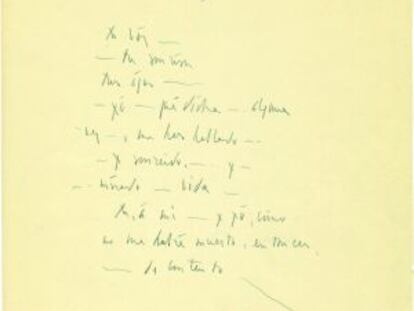 tu vóz —
— tu sonrisa
tus ojos —
— yó — qué dicha — alguna
vez —, me has hablado —
— y sonreído, — y —
— mirado — vida —
tú, á mí — y yó, cómo
no me habré muerto, entonces,
— de contento